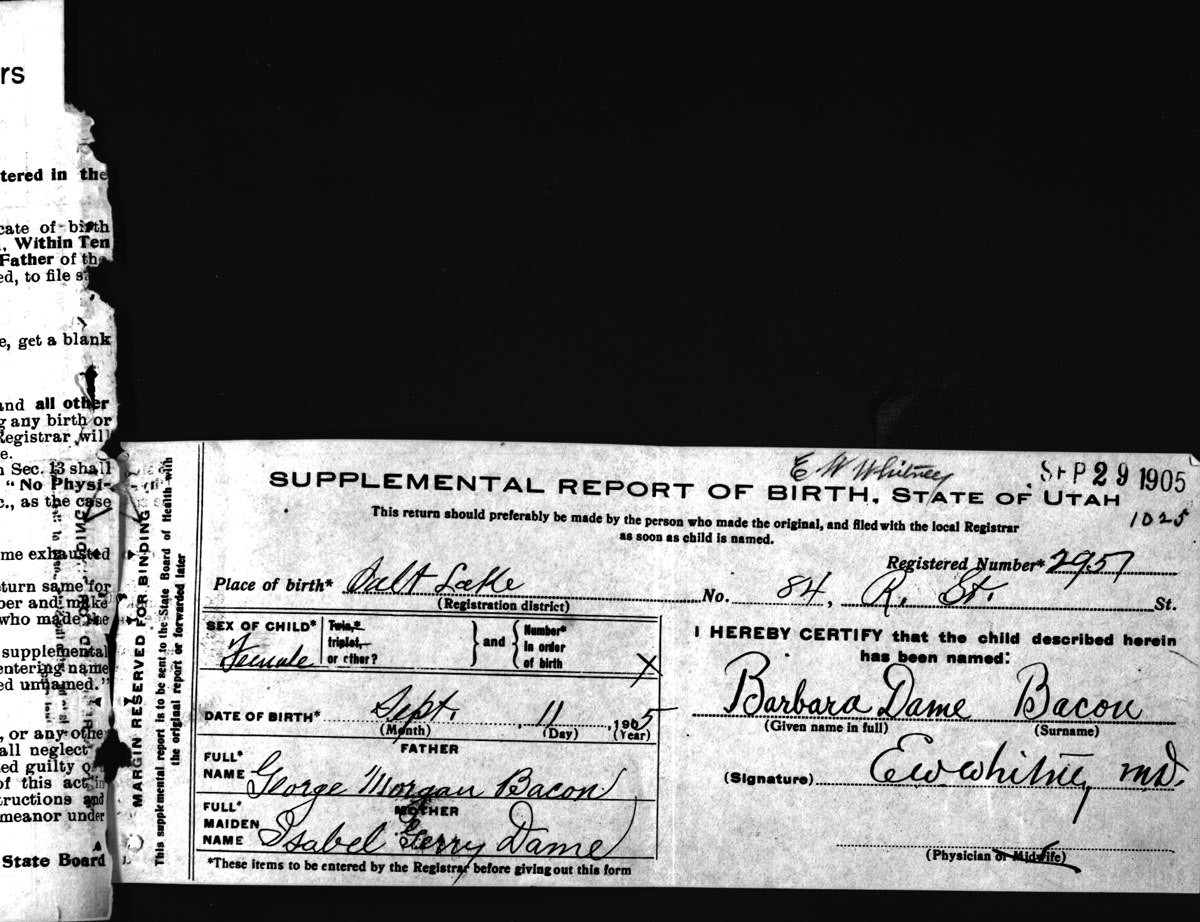 rs
tered in the
cate of birth
Within Ten
Father of the
ed, to file
e, get a blank
and all other
g any birth or
Registrar will
e.
n Sec. 13 shall
"No Physi-
c., as the case
me exhausted
eturn same for
ber and make
who made the
supplemental
entering name
ed unnamed."
, or any other
all neglect
ed guilty
of this act
tructions and
meanor under
State Board
MARGIN RESERVED FOR BINDING
This supplemental report is to be sent to the State Board of Health with
the original report or forwarded later
E W Whitney
SEP 29 1905
SUPPLEMENTAL REPORT OF BIRTH, STATE OF UTAH
1025
This return should preferably be made by the person who made the original, and filed with the local Registrar
as soon as child is named.
Registered Number* 2957
Place of birth* Salt Lake No. 84, R. St. St.
(Registration district)
SEX OF CHILD* Female
Twin,
triplet,
or other?
and
Number*
in order
of birth X
DATE OF BIRTH* Sept. 11, 1905
(Month) (Day) (Year)
FATHER
FULL*
NAME George Morgan Bacon
MOTHER
FULL*
MAIDEN
NAME Isabel Gerry Dame
*These items to be entered by the Registrar before giving out this form
I HEREBY CERTIFY that the child described herein
has been named:
Barbara Dame Bacon
(Given name in full) (Surname)
(Signature) E W Whitney MD.
(Physician or Midwife)